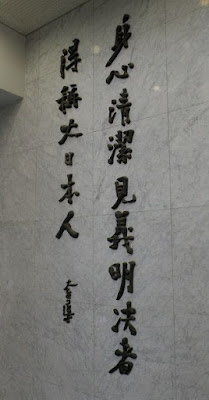 身心清潔見義明決者
得稱大日本人